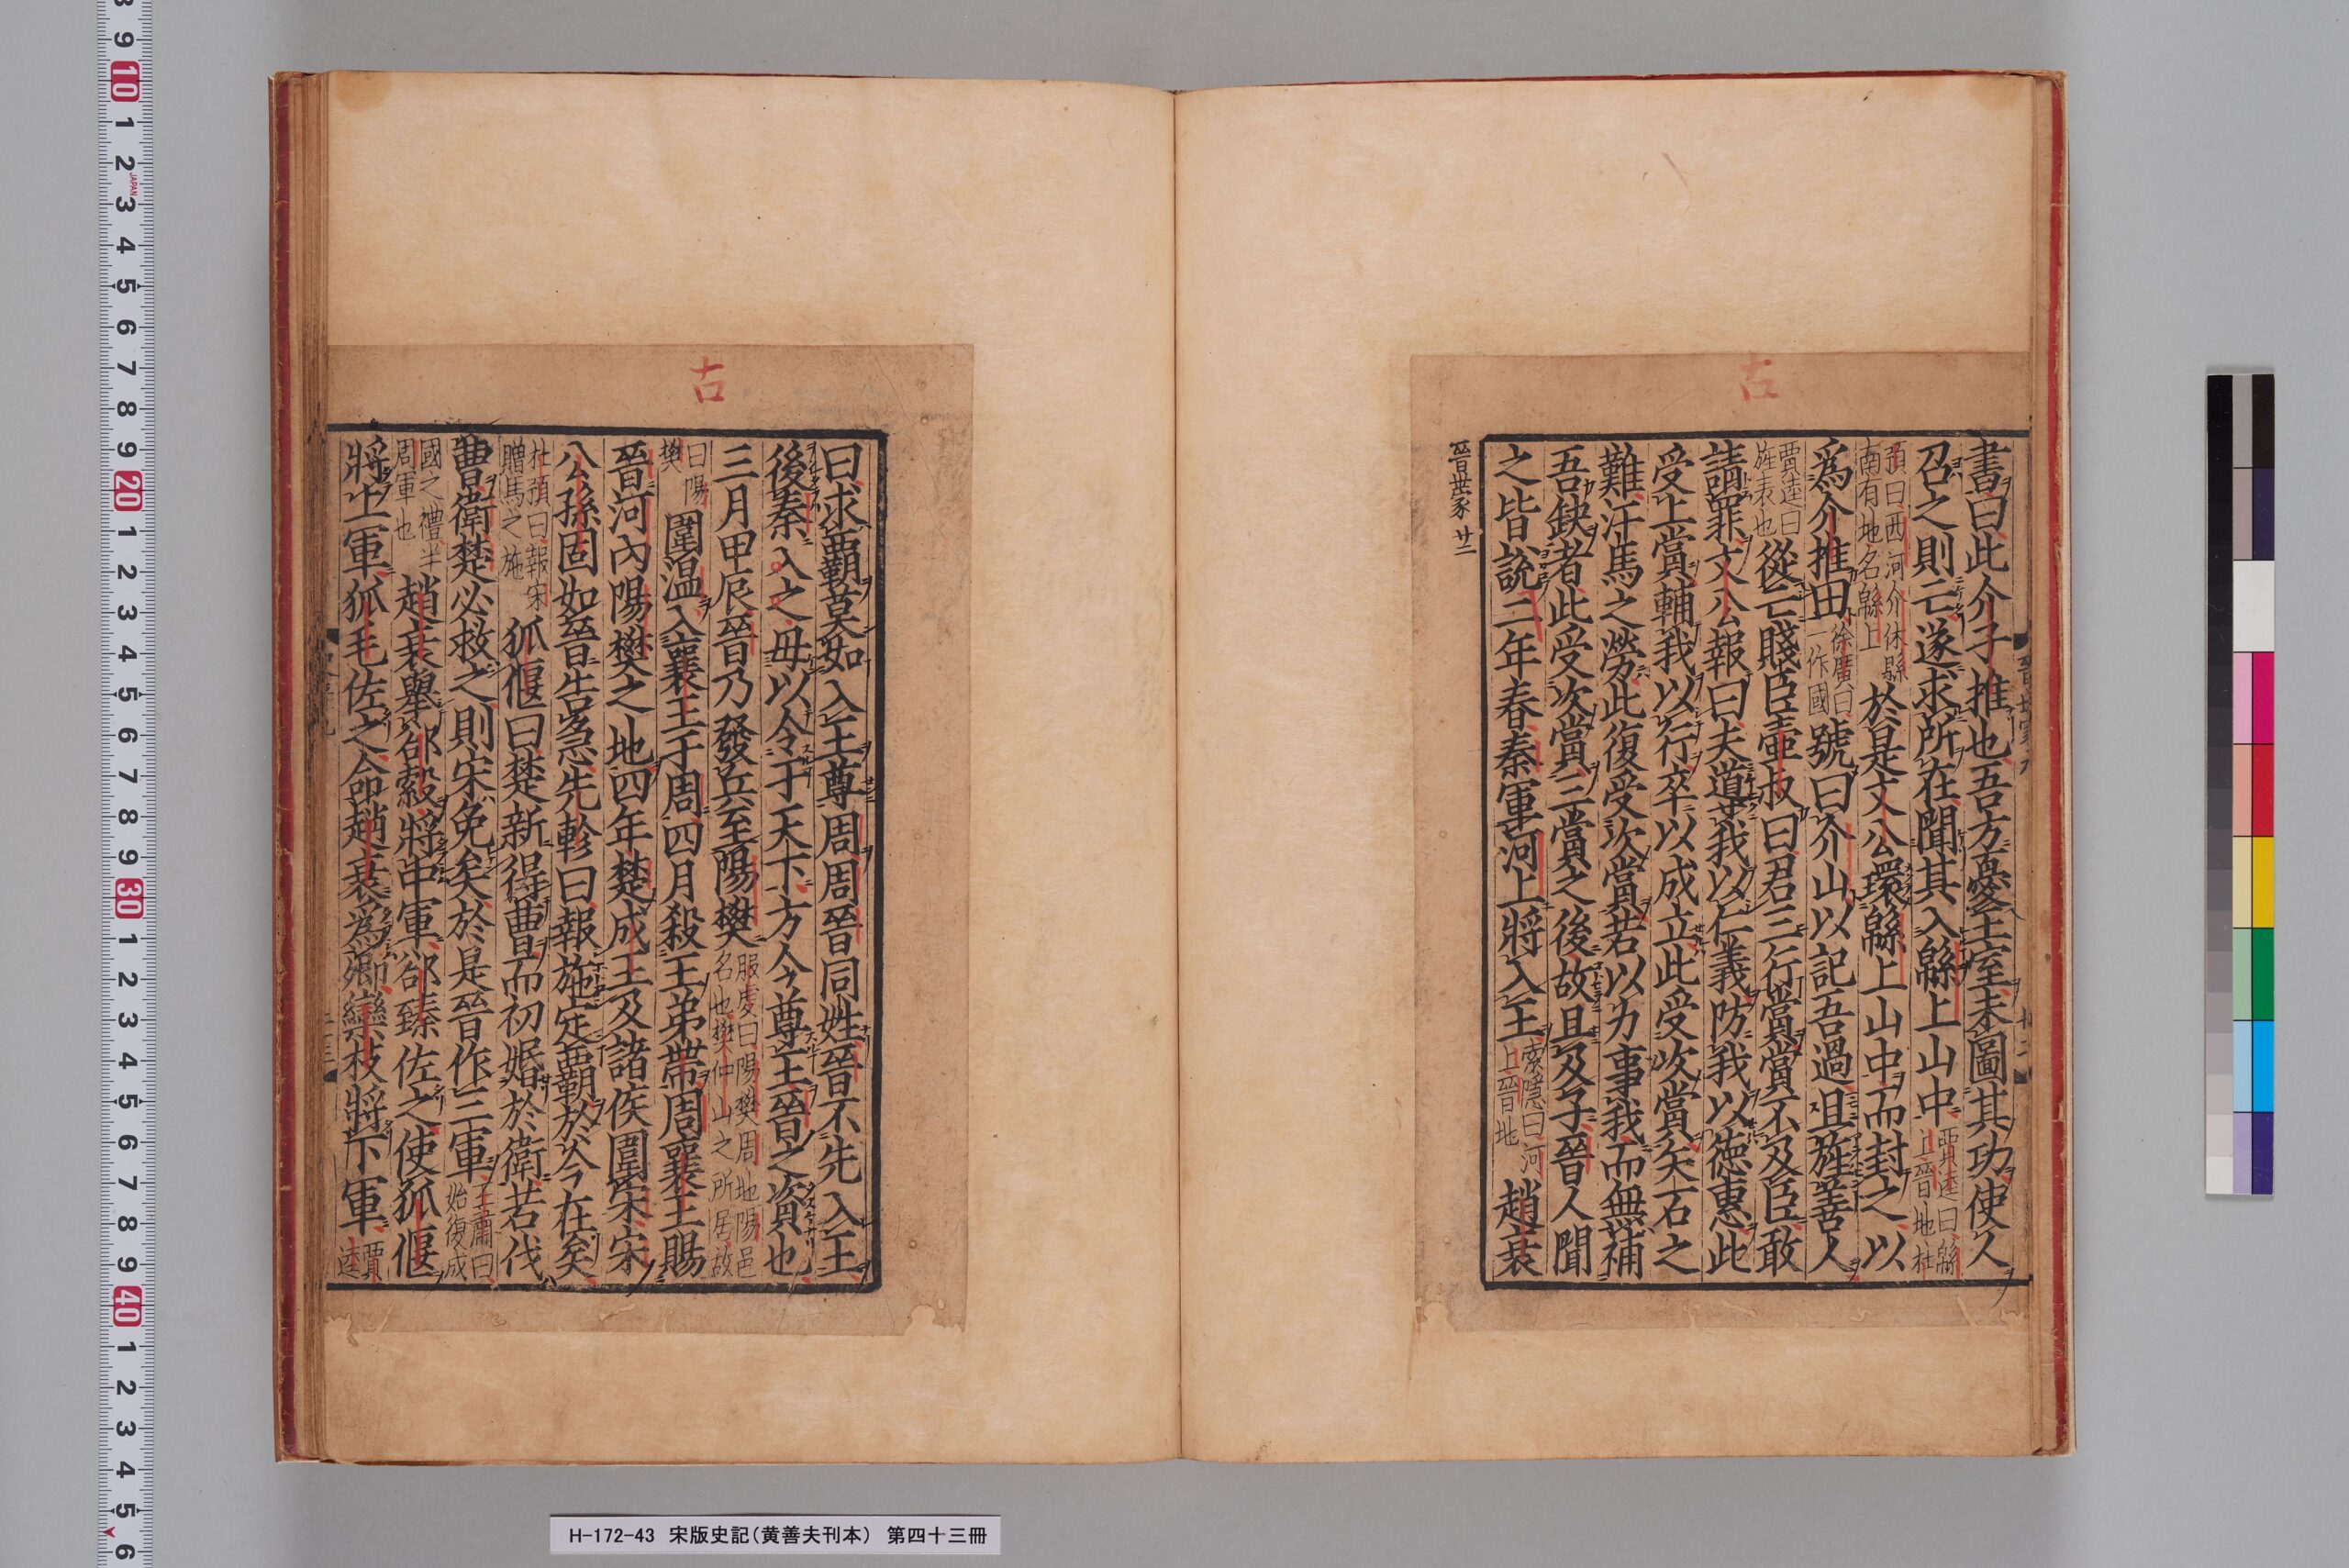 古
書曰此介子推也吾方憂王室未圖其功使人
召之則亡遂求所在聞其入緜上山中賈逵曰緜上晉地杜
預曰西河介休縣南有地名緜上於是文公環緜上山中而封之以
爲介推田徐廣曰一作國號曰介山以記吾過且旌善人
賈逵曰旌表也從亡賤臣壷叔曰君三行賞賞不及臣敢
請罪文公報曰夫道我以仁義防我以德惠此
受上賞輔我以行卒以成立此受次賞矢石之
難汗馬之勞此復受次賞若以力事我而無補
吾缺者此受次賞三賞之後故且及子晉人聞
之皆說二年春秦軍河上將入王索隱曰河上晉地趙衰
晉世家 廿二
古
曰求霸莫如入王尊周周晉同姓晉不先入王
後秦入之毋以令于天下方今尊王晉之資也
三月甲辰晉乃發兵至陽樊服虔曰陽樊周地陽邑名也樊仲山之所居故
曰陽樊圍溫入襄王于周四月殺王弟帶周襄王賜
晉河內陽樊之地四年楚成王及諸侯圍宋宋
公孫固如晉告急先軫曰報施定霸於今在矣
杜預曰報宋贈馬之施狐偃曰楚新得曹而初婚於衛若伐
曹衛楚必救之則宋免矣於是晉作三軍王肅曰始復成
國之禮半周軍也趙衰舉郤縠將中軍郤臻佐之使狐偃
將上軍狐毛佐之命趙衰爲卿欒枝將下軍賈逵
H-172-43 宋版史記(黄善夫刊本) 第四十三冊